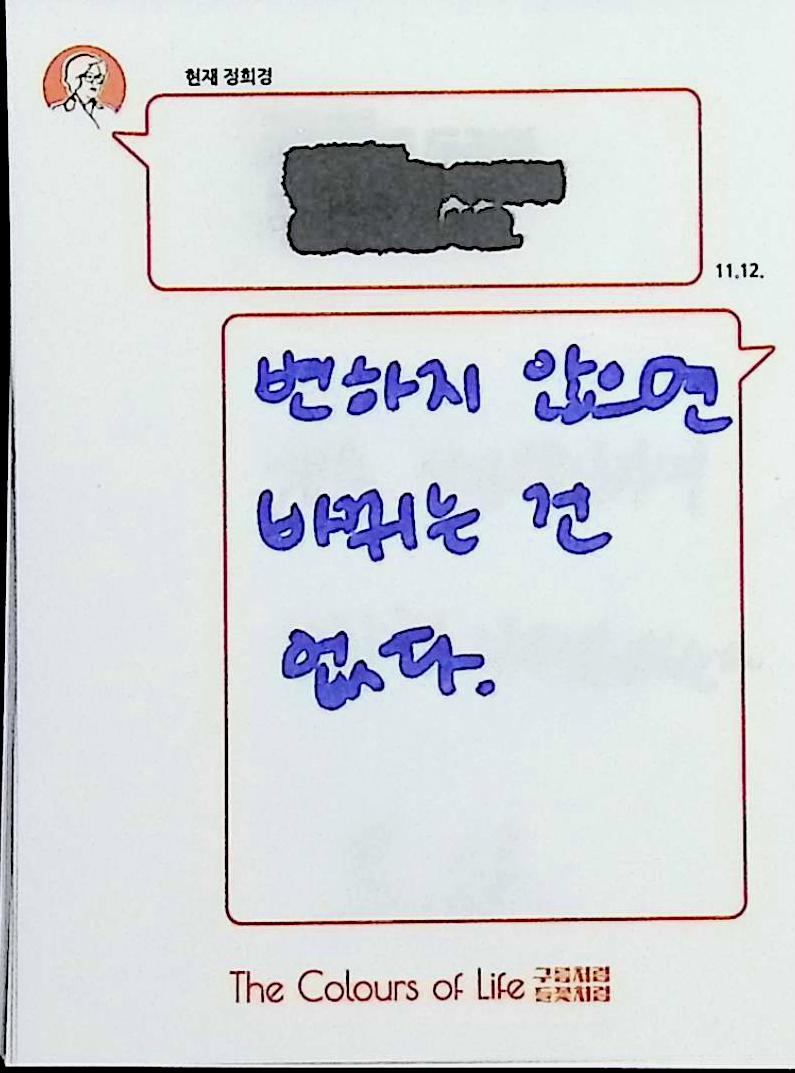 현재 정희경
11.12.
변하지 않으면
바뀌는 건
없다.
The Colours of Life 구름처럼
들꽃처럼